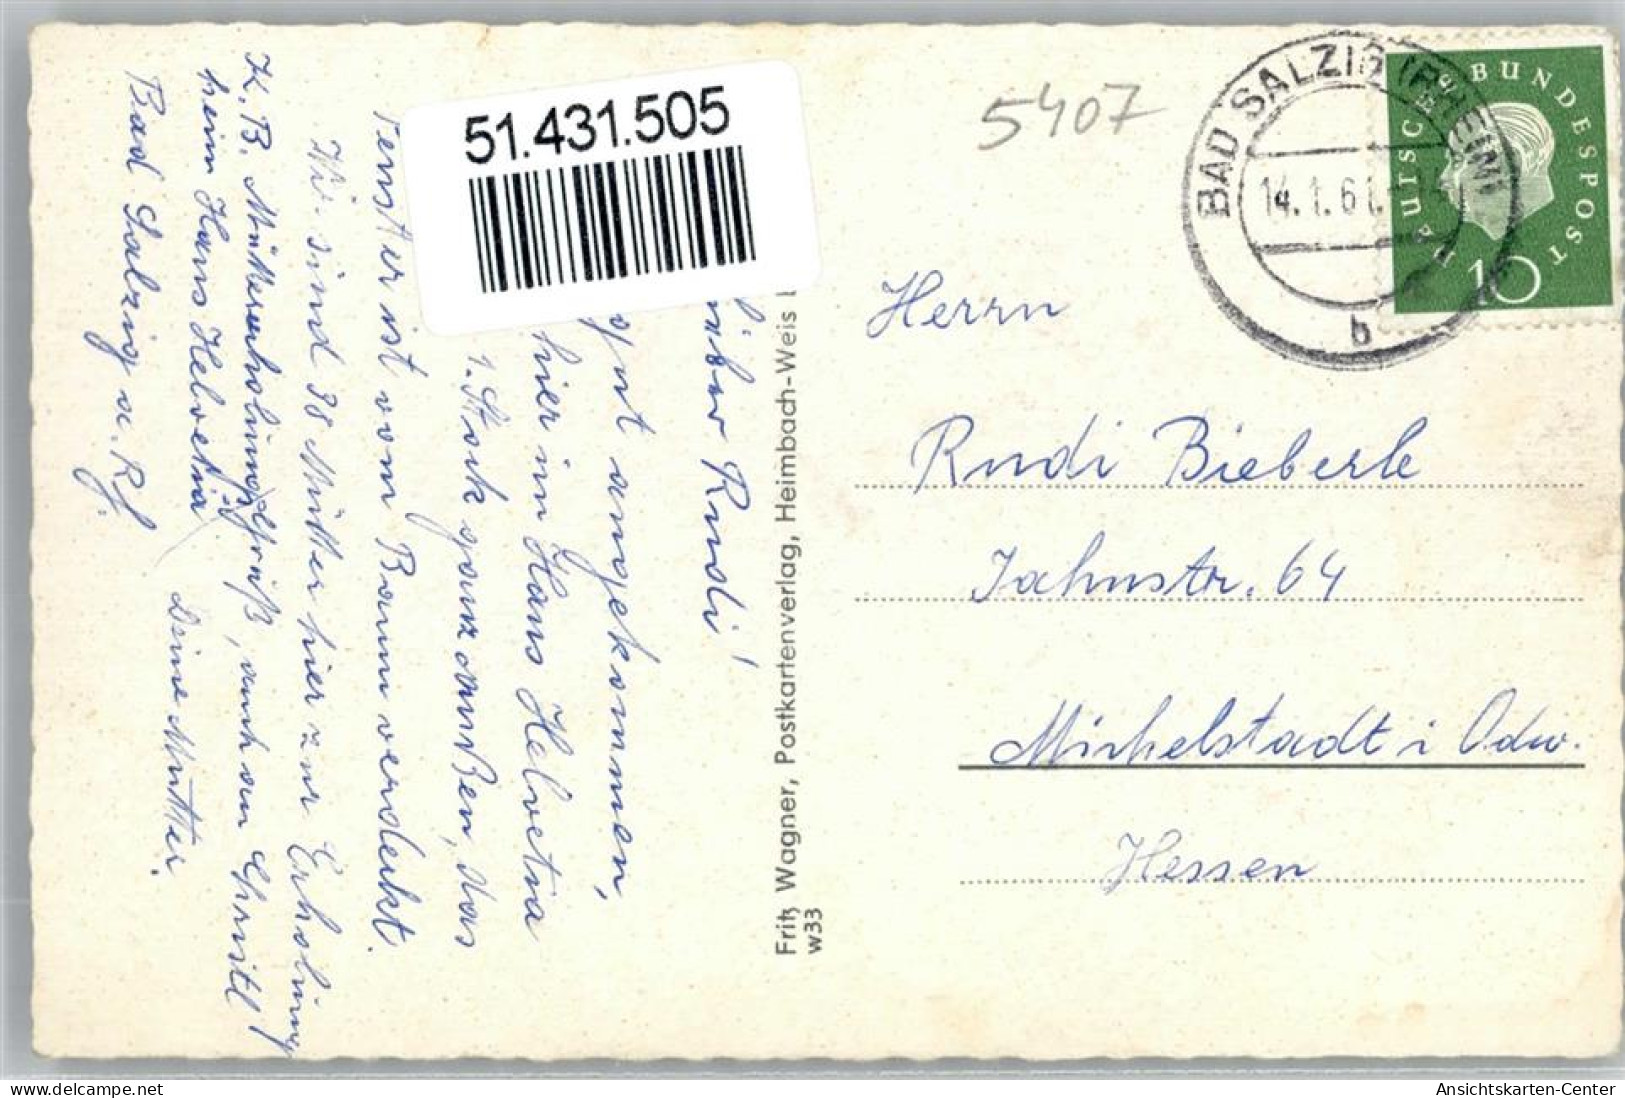 51.431.505
5407
BAD SALZIG (RHEIN)
14.1.61
b
DEUTSCHE BUNDESPOST
10
Herrn
Rudi Bieberle
Jahnstr. 64
Michelstadt i Odw.
Hessen
Fritz Wagner, Postkartenverlag, Heimbach-Weis
w33
Rudi!
gut angekommen,
hier im Haus Helvetia
1. Stock ganz außen, das
Fenster ist vom Baum verdeckt.
Wir sind 38 Mütter hier zur Erholung
K.B. Müttererholungs Gruß, auch an Christl!
heim Haus Helvetia
Deine Mutter.
Bad Salzig a. Rh.
www.delcampe.net
Ansichtskarten-Center